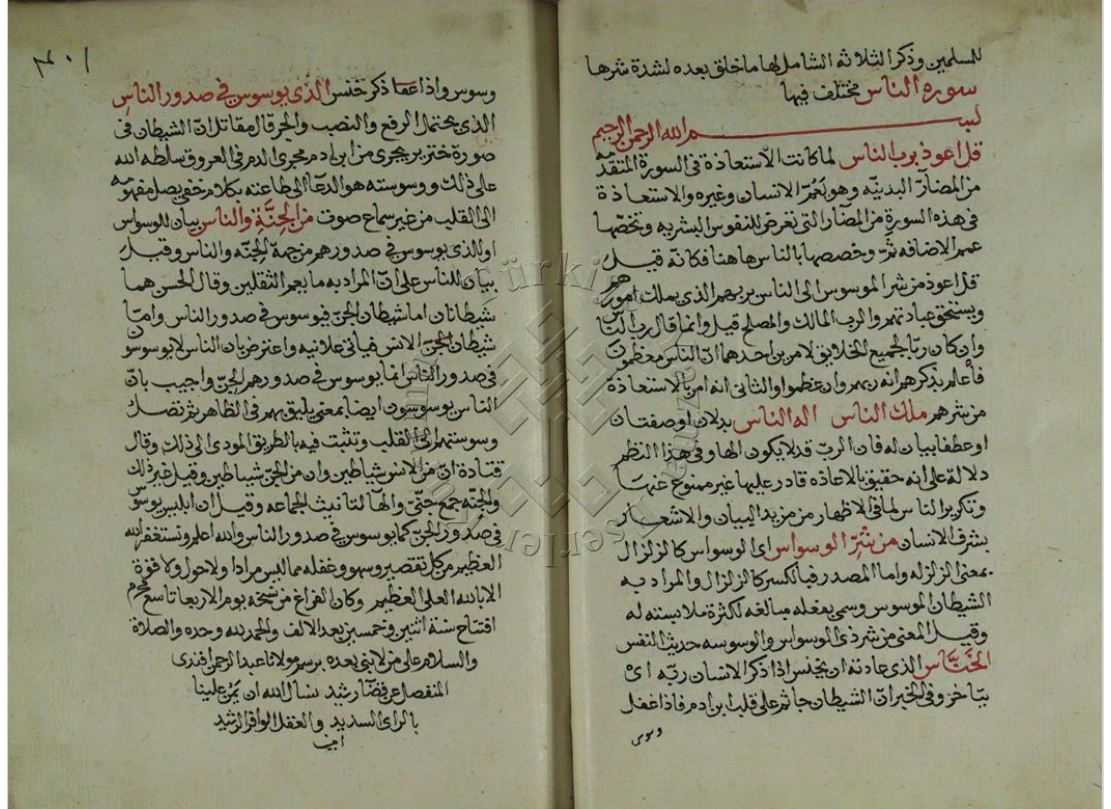 للمسلمين وذكر الثلاثة الشامل لها ما خلق بعده لشدة شرها
سورة الناس مختلف فيها
بسم الله الرحمن الرحيم
قل اعوذ برب الناس لما كانت الاستعاذة فى السورة المتقدمه
من المضار البدنيه وهو يعم الانسان وغيره والاستعاذة
فى هذه السورة من المضار التى تعرض للنفوس البشريه وتخصها
عمم الاضافه ثم وخصصها بالناس هاهنا فكانه قيل
قل اعوذ من شر الموسوس الى الناس بربهم الذى يملك امورهم
ويستحق عبادتهم والرب المالك والمصلح قيل وانما قال رب الناس
وان كان ربا لجميع الخلايق لامرين احدهما ان الناس معظمون
فاعلم بذكرهم انه ربهم وان عظموا والثانى انه امر بالاستعاذة
من شرهم ملك الناس اله الناس بدلان او صفتان
او عطفا بيان له فان الرب قد لا يكون الها وفى هذا النظم
دلالة على انه حقيق بالاعاذه قادر عليها غير ممنوع عنها
وتكرير الناس لما فى الاظهار من مزيد البيان والاشعار
بشرف الانسان من شر الوسواس اى الوسواس كالزلزال
بمعنى الزلزله واما المصدر فبالكسر كالزلزال والمراد به
الشيطان الموسوس وسمى بفعله مبالغه لكثرة ملابسته له
وقيل المعنى من شر ذى الوسواس والوسوسه حديث النفس
الخناس الذى عادته ان يخنس اذا ذكر الانسان ربه اى
يتاخر وفى الخبر ان الشيطان جاثم على قلب ابن ادم فاذا غفل
وسوس
٣٠١
وسوس واذا ذكر خنس الذى يوسوس فى صدور الناس
الذى يحتمل الرفع والنصب والجر قال مقاتل ان الشيطان فى
صورة خنزير يجرى من ابن ادم مجرى الدم فى العروق سلطه الله
على ذلك ووسوسته هو الدعا الى طاعته بكلام خفى يصل مفهومه
الى القلب من غير سماع صوت من الجنة والناس بيان للوسواس
او للذى يوسوس فى صدورهم من جهة الجنه والناس وقيل
بيان للناس على ان المراد به ما يعم الثقلين وقال الحسن هما
شيطانان اما شيطان الجن فيوسوس فى صدور الناس واما
شيطان الانس فياتى علانيه واعترض بان الناس لا يوسوسون
فى صدور الناس انما يوسوس فى صدورهم الجن واجيب بان
الناس يوسوسون ايضا بمعنى يليق بهم فى الظاهر ثم تصل
وسوستهم الى القلب وتثبت فيه بالطريق المودى الى ذلك وقال
قتادة ان من الانس شياطين وان من الجن شياطين وقيل غير ذلك
والجنه جمع جنى والها لتانيث الجماعه وقيل ان ابليس يوسوس
فى صدور الجن كما يوسوس فى صدور الناس والله اعلم ونستغفر الله
العظيم من كل تقصير وسهو وغفله مما ليس مرادا ولا حول ولا قوة
الا بالله العلى العظيم وكان الفراغ من نسخه يوم الاربعا تاسع محرم
افتتاح سنة اثنين وخمسين بعد الالف والحمد لله وحده والصلاة
والسلام على من لا نبى بعده برسم مولانا عبد الرحمن افندى
المنفصل عن قضا رشيد نسال الله ان يمن علينا
بالراى السديد والعقل الوافر الرشيد
امين